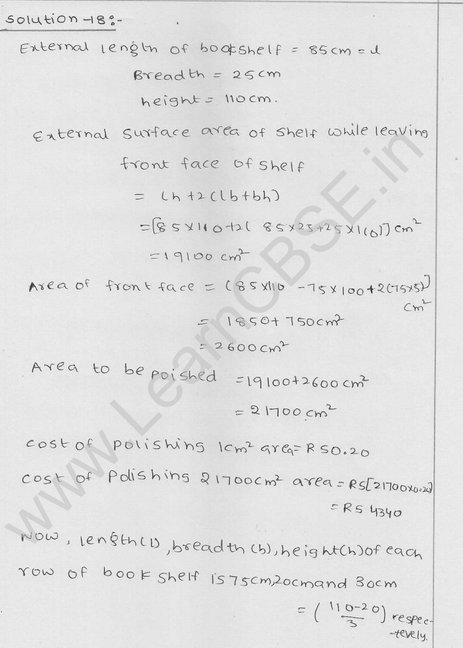 Solution-18:-
External length of bookshelf = 85cm = l
Breadth = 25cm
height = 110cm.
External surface area of shelf while leaving
front face of shelf
= lh + 2(lb+bh)
= [85×110+2( 85×25+25×110)] cm²
= 19100 cm²
Area of front face = (85×110 - 75×100+2(75×5)]
cm²
= 1850+750cm²
= 2600cm²
Area to be poished = 19100+2600cm²
= 21700 cm²
cost of polishing 1cm² area = RS0.20
cost of polishing 21700cm² area = RS[21700×0.20]
= RS 4340
Now, length(l), breadth(b), height(h) of each
row of bookshelf is 75cm, 20cm and 30cm
= (110-20/3) respec-
-tevely.
www.LearnCBSE.in